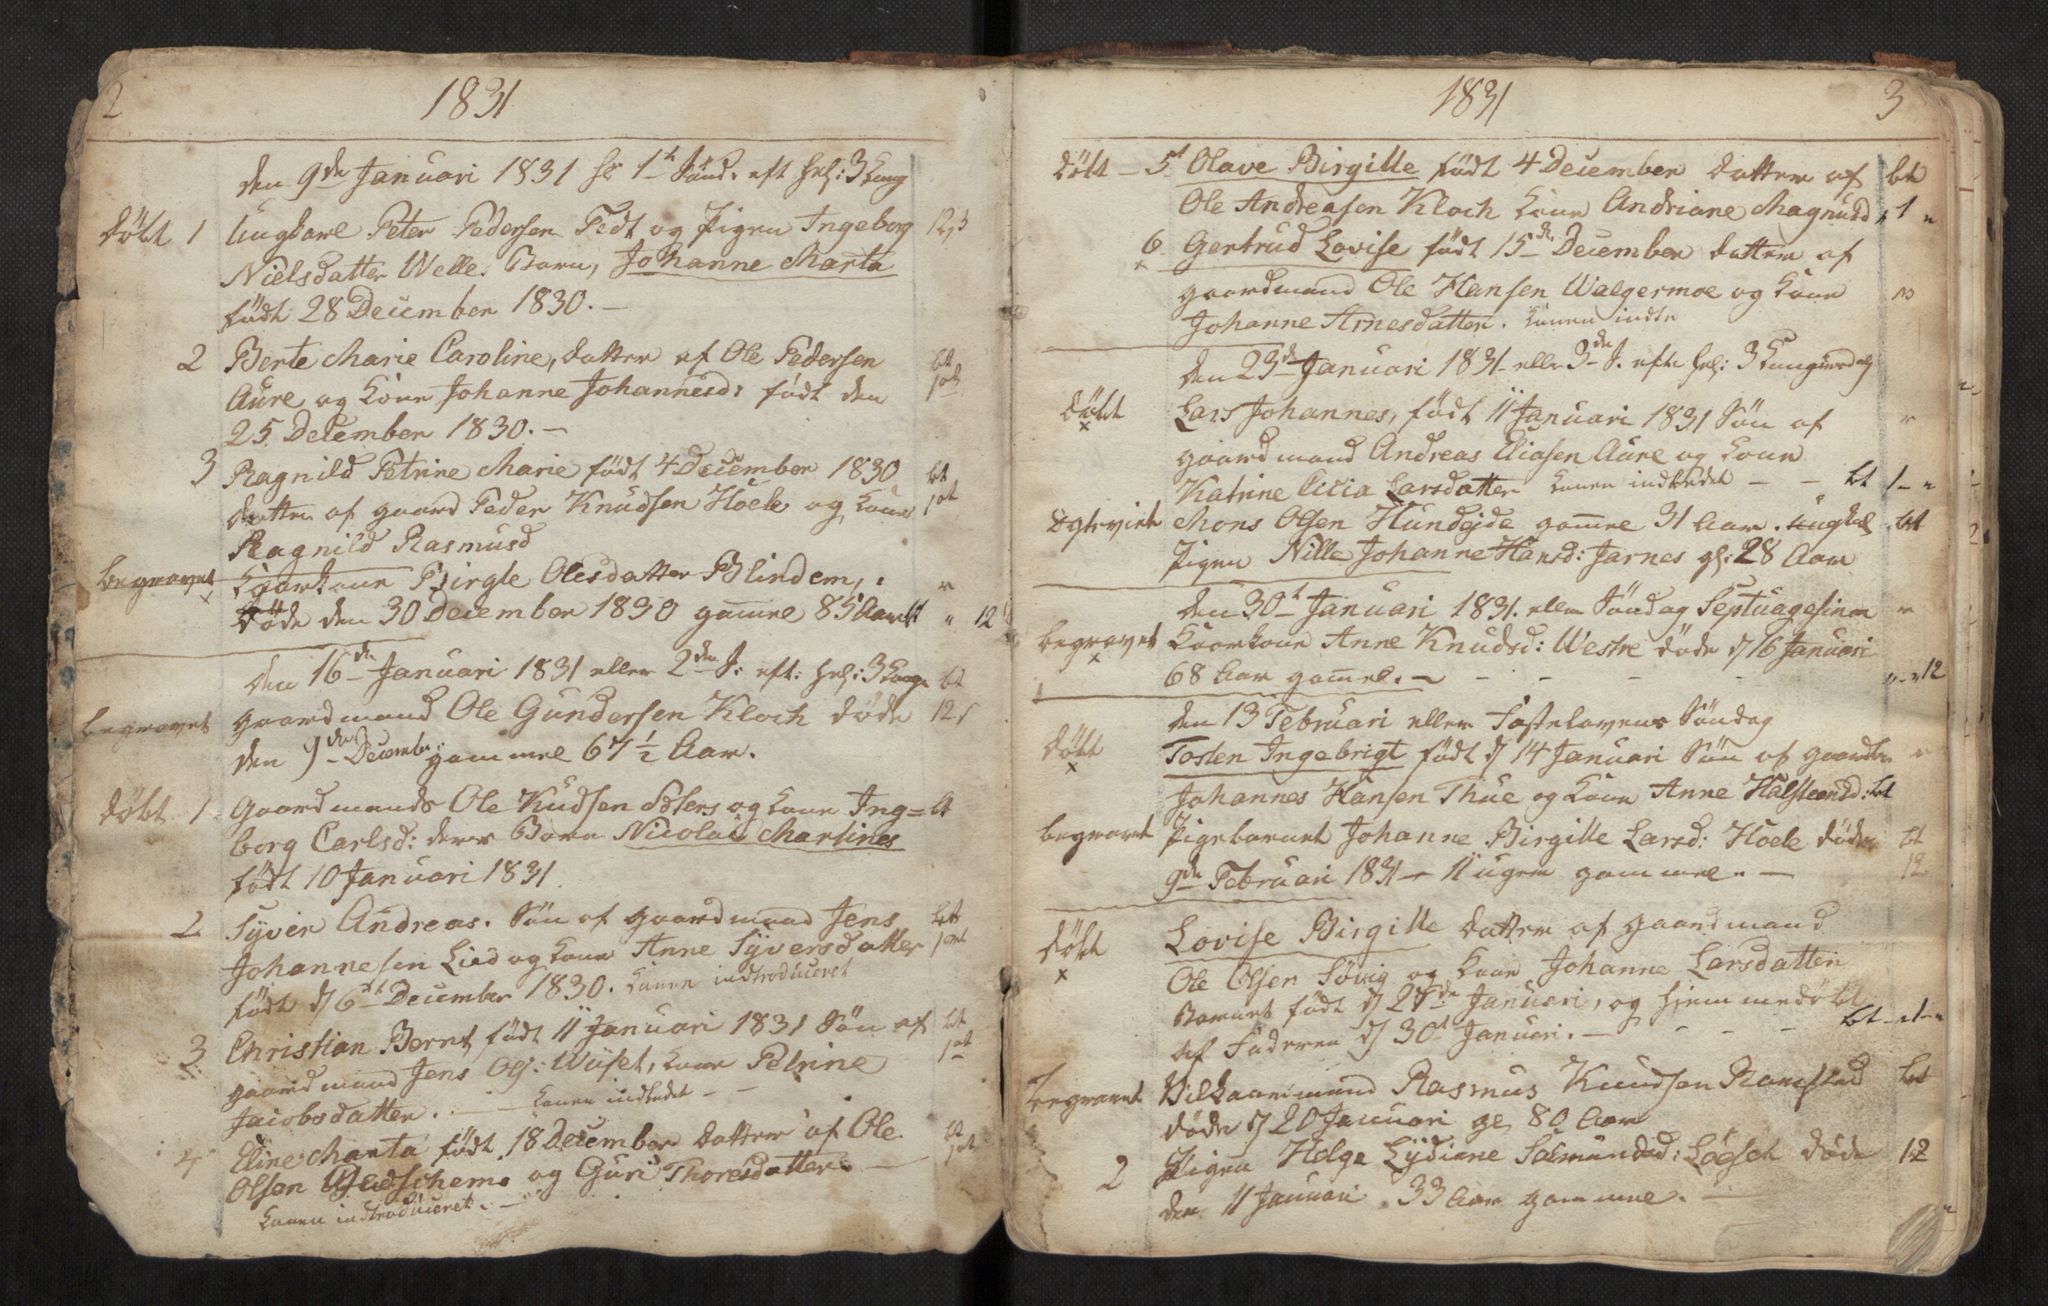 2
1831
den 9de Januari 1831 1te Sönd. eft hel: 3 Kong
döbt 1 Ungkarl Peter Pedersen Fedt og Pigen Ingeborg
Nielsdatter Welle. Barn, Johanne Marta
födt 28 December 1830. –
2 Berte Marie Caroline, datter af Ole Pedersen bt
Aure og Kone Johanne Johannesd: födt den
25 December 1830. –
3 Ragnild Petrine Marie födt 4 December 1830 bt
datter af gaard Peder Knudsen Hoele og Kone
Ragnild Rasmusd
begravet Kaarkone Birgte Olesdatter Blindem,
döde den 30 December 1830 gamel 85 Aar bt " 12
den 16de Januari 1831 eller 2den S: eft: hel: 3 Konge bt
begravet gaardmand Ole Gundersen Kloch döde 12
den 9de Decembr: gammel 67 1/2 Aar.
döbt 1 Gaardmands Ole Kudsen og Kone Ing= bt
borg Carlsd: deres Barn Nicolai Martines
födt 10 Januari 1831
2 Syver Andreas. Sön af gaardmand Jens bt
Johannesen Lied og Kone Anne Syversdatter
födt d 6te December 1830. Konen indtroduceret
3 Christian Bernt födt 11 Januari 1831 Sön af bt
gaardmand Jens Ols: Kone Petrine
Jacobsdatter. Konen indledet –
4 Eline Marta födt 18 December datter af Ole bt
Olsen og Guri Thoresdatter. –
Konen indtroduceret. –
1831
3
döbt – 5 Olave Birgitte födt 4 December datter af bt
Ole Andreasen Kloch Kone Andriane Magnusd " 1 "
6 Gertrud Lovise födt 15de December datter af
gaardmand Ole Hansen Walgermoe og Kone
Johanne Arnesdatter. Konen indte
den 23de Januari 1831 eller 3de S. efter hel: 3 Kongersdag
döbt Lars Johannes, födt 11 Januari 1831 Sön af
x gaardmand Andreas Eliasen Aure og Kone
Katrine Cicia Larsdatter Konen indledet – – bt 1 – "
Egteviet Mons Olsen Hundejde gamel 31 Aar. Ungkal bt
Pigen Nille Johanne Hansd: Jarnes gl: 28 Aar
den 30te Januari 1831. eller Söndag Septuagesima
begravet Kaarkone Anne Knudsd: Westre döde d 16 Januari
x 68 Aar gamel. – – – – – 12
den 13 Februari eller Fastelavens Söndag
döbt Tosten Ingebrigt födt d 14 Januari Sön af gaardm
x Johannes Hansen Thue og Kone Anne Halsteensd: bt
begravet Pigebarnet Johanne Birgitte Larsd: Hoele döde bt
9de Februari 1831 – 11 uger gammel. – 12
döbt Lovise Birgitte datter af gaardmand
x Ole Olsen Søvig og Kone Johanne Larsdatter
Barnet födt d 28de Januari, og hjemmedöbt
af Faderen d 30te Januari. – – – – bt – 1 – "
begravet Vilkaarmand Rasmus Knudsen Ramstad bt
döde d 20 Januari gl 80 Aar
2 Pigen Helga Lydiane Salmundsd: Löeset döde 12
den 11 Januari . 33 Aar gammel. –